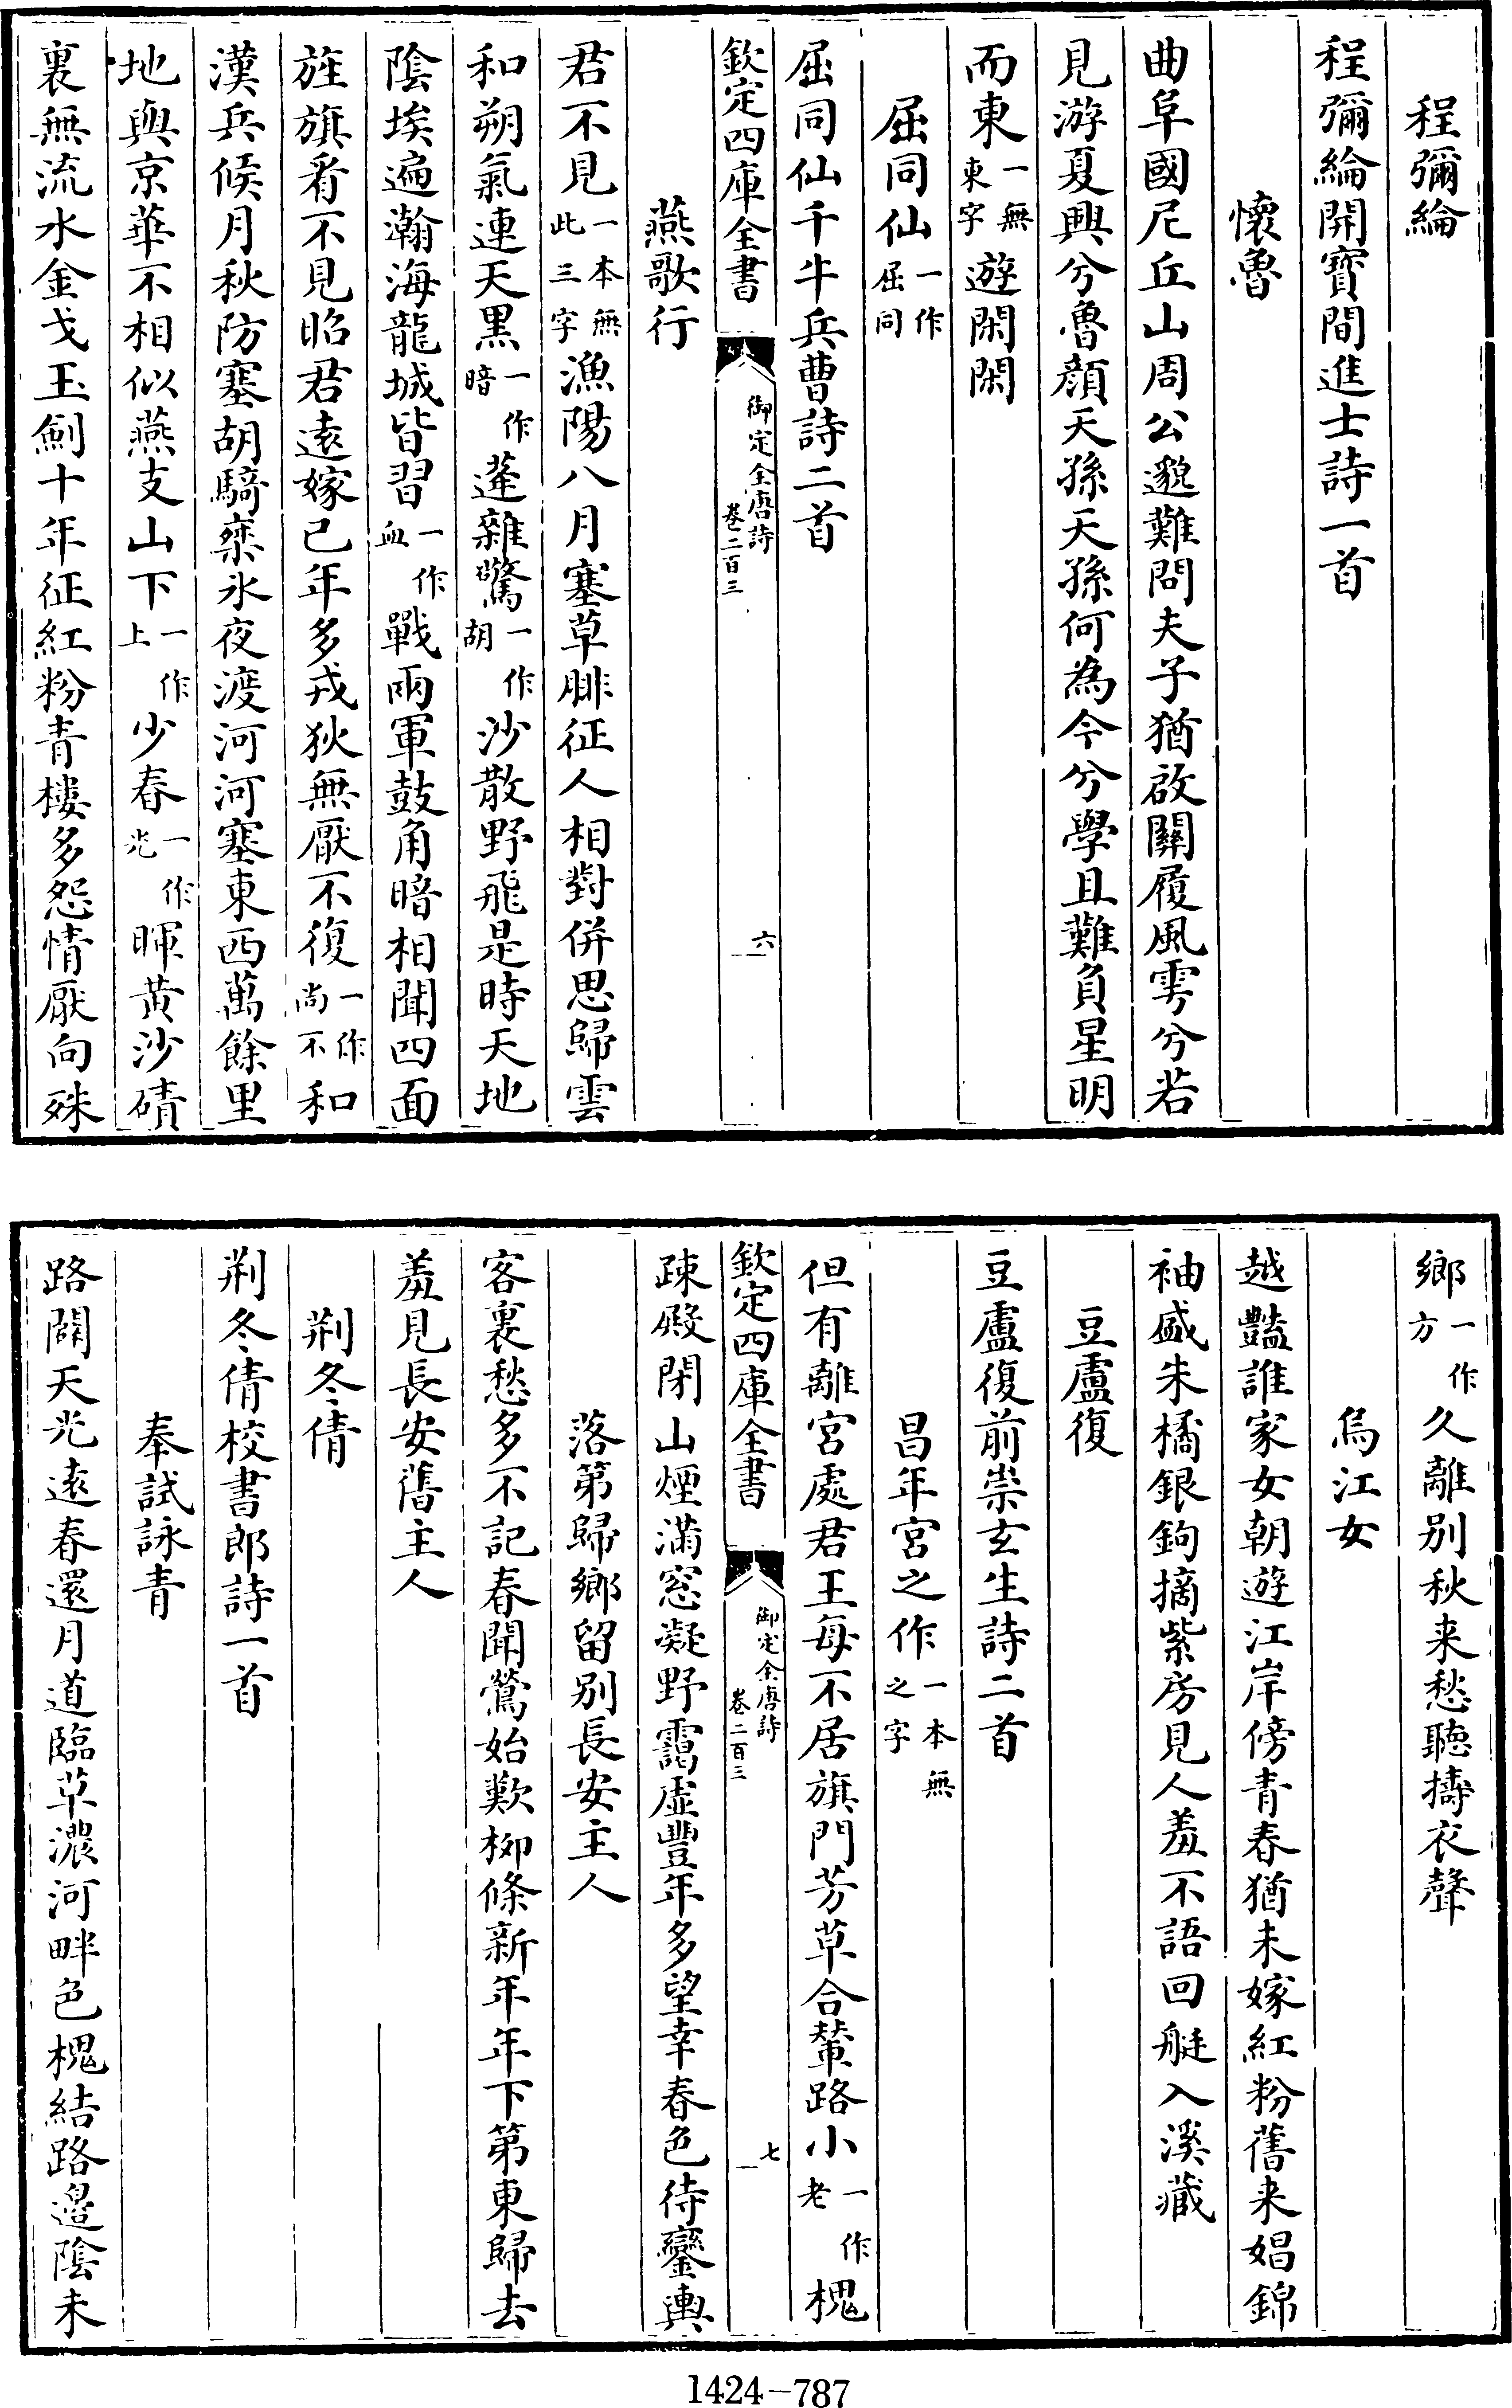 程彌綸
程彌綸開寶間進士詩一首
懷魯
曲阜國尼丘山周公邈難問夫子猶啟關履風雩兮若
見游夏興兮魯顏天孫天孫何為今兮學且難負星明
而東一無東字遊閑閑
屈同仙一作屈同
屈同仙千牛兵曹詩二首
欽定四庫全書
御定全唐詩
卷二百三
六
燕歌行
君不見一本無此三字漁陽八月塞草腓征人相對併思歸雲
和朔氣連天黑一作暗蓬雜驚一作胡沙散野飛是時天地
陰埃遍瀚海龍城皆習一作血戰兩軍鼓角暗相聞四面
旌旗看不見昭君遠嫁已年多戎狄無厭不復一作尚不和
漢兵候月秋防塞胡騎乘氷夜渡河河塞東西萬餘里
地與京華不相似燕支山下一作上少春一作光暉黄沙磧
裏無流水金戈玉劍十年征紅粉青樓多怨情厭向殊
鄉一作方久離别秋来愁聽擣衣聲
烏江女
越豔誰家女朝遊江岸傍青春猶未嫁紅粉舊来娼錦
袖盛朱橘銀鉤摘紫房見人羞不語回艇入溪藏
豆盧復
豆盧復前崇玄生詩二首
昌年宮之作一本無之字
但有離宮處君王每不居旗門芳草合輦路小一作老槐
欽定四庫全書
御定全唐詩
卷二百三
七
疎殿閉山煙滿窓凝野靄虛豐年多望幸春色待鑾輿
落第歸鄉留别長安主人
客裏愁多不記春聞鶯始歎柳條新年年下第東歸去
羞見長安舊主人
荆冬倩
荆冬倩校書郎詩一首
奉試詠青
路闢天光遠春還月道臨草濃河畔色槐結路邊陰未
1424-787